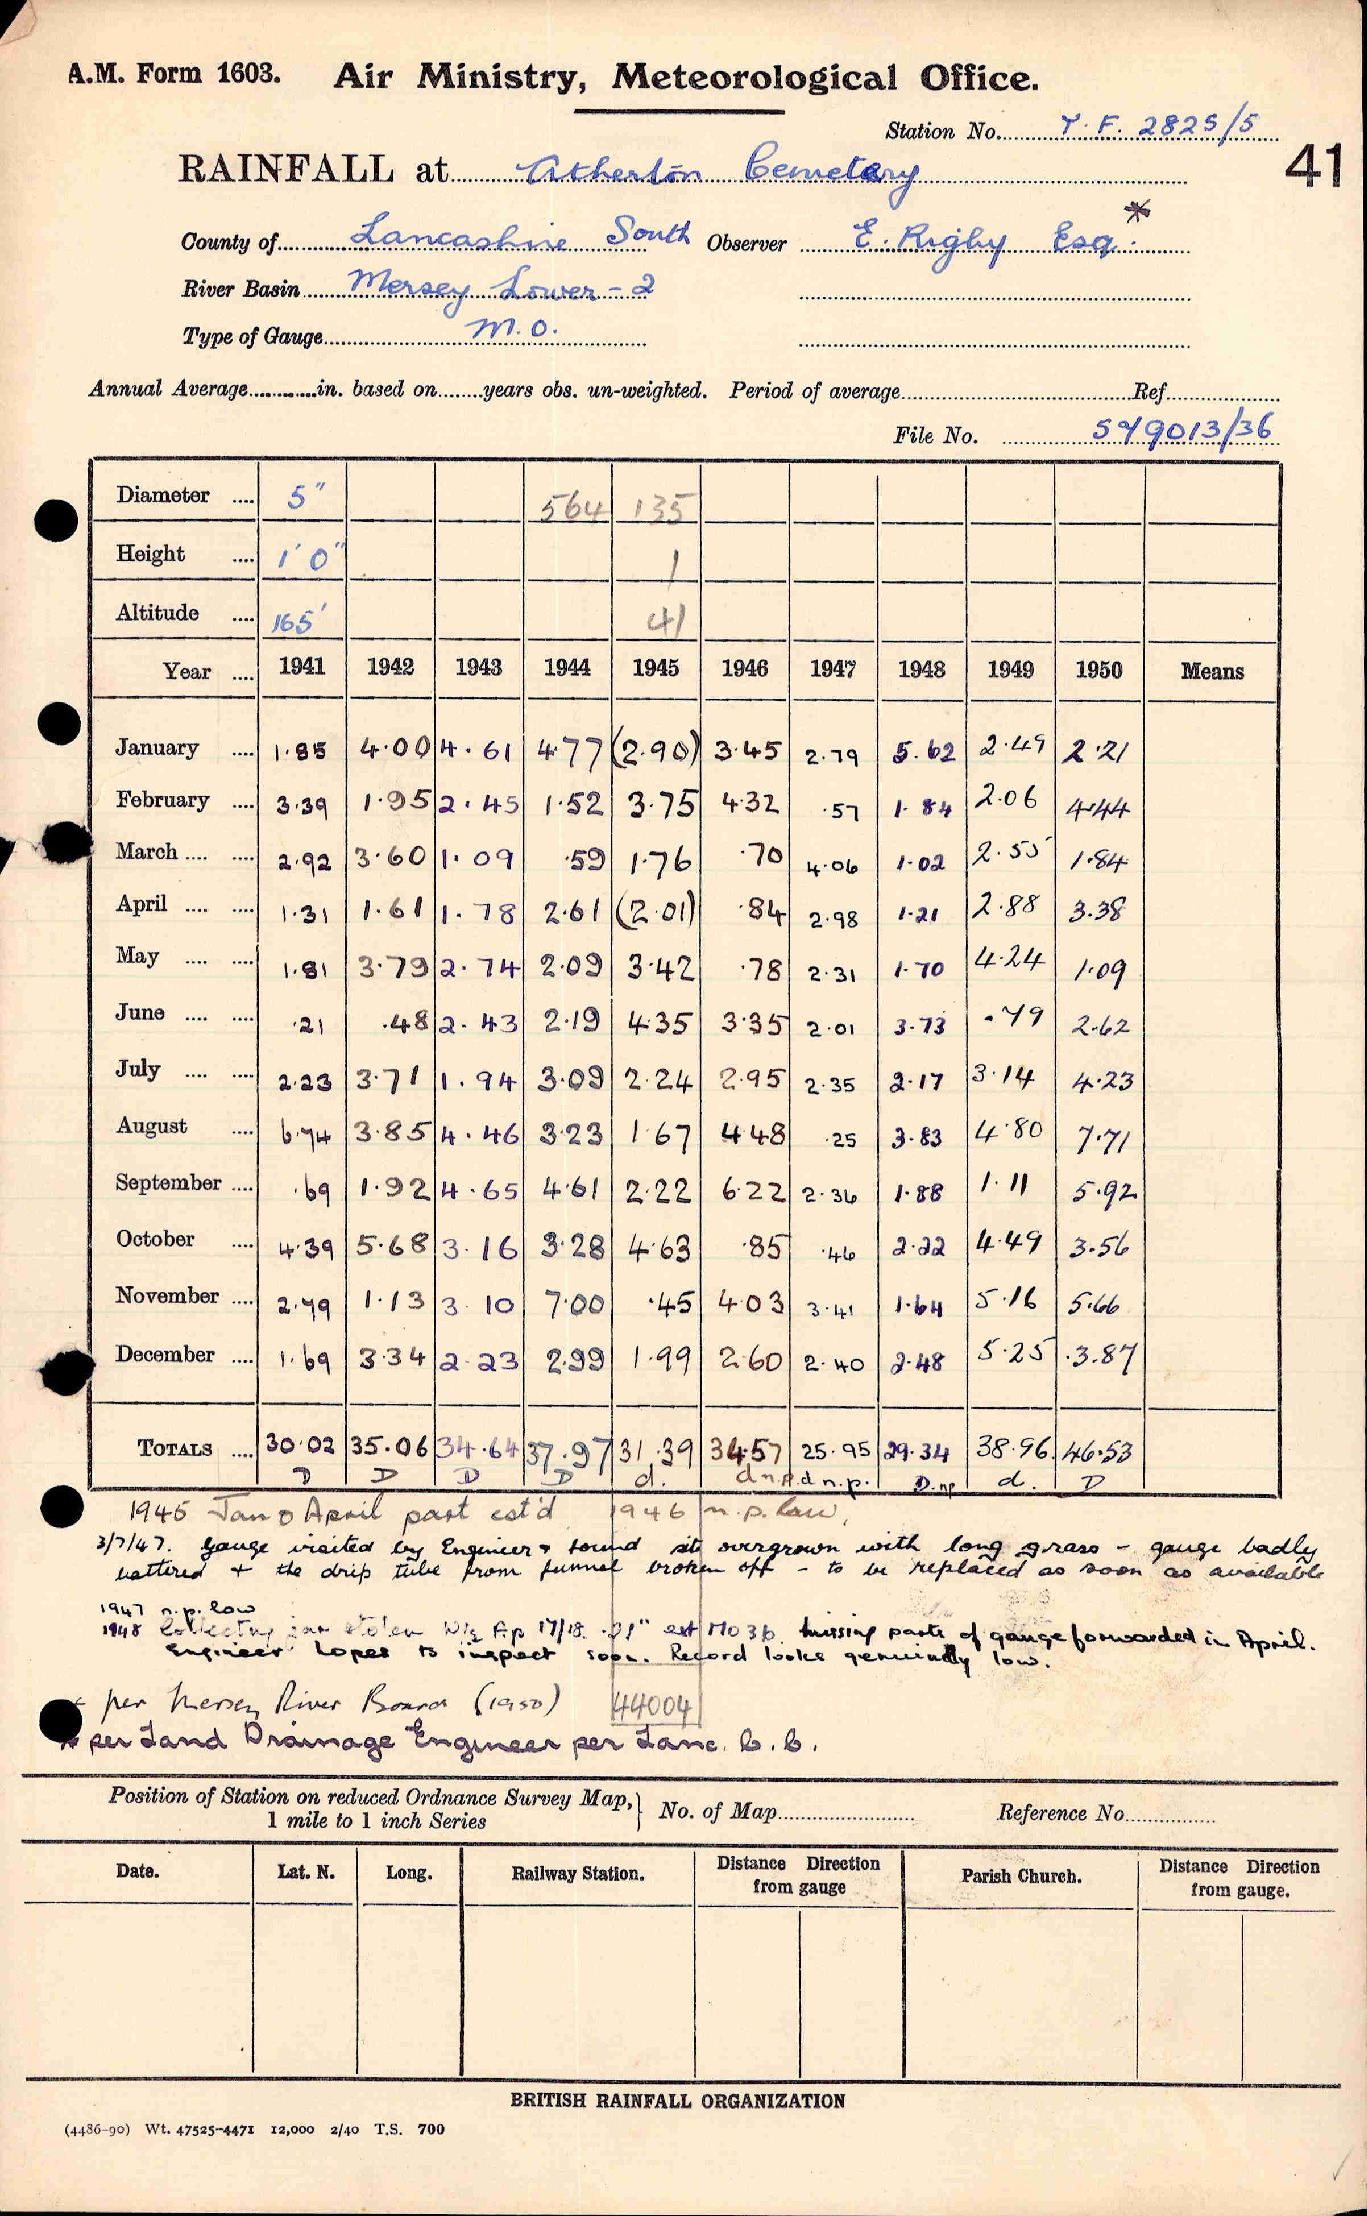 A.M. Form 1603. Air Ministry, Meteorological Office.
Station No. T.F. 2825/5
41
RAINFALL at Atherton Cemetery
County of Lancashire South Observer E. Rigby Esq. *
River Basin Mersey Lower - 2
Type of Gauge M.O.
Annual Average in. based on years obs. un-weighted. Period of average Ref
File No. 579013/36
Diameter .... 5" 564 135
Height .... 1' 0" 1
Altitude .... 165' 41
Year .... 1941 1942 1943 1944 1945 1946 1947 1948 1949 1950 Means
January .... 1.85 4.00 4.61 4.77 (2.90) 3.45 2.79 5.62 2.49 2.21
February .... 3.39 1.95 2.45 1.52 3.75 4.32 .57 1.84 2.06 4.44
March .... .... 2.92 3.60 1.09 .59 1.76 .70 4.06 1.02 2.55 1.84
April .... .... 1.31 1.61 1.78 2.61 (2.01) .84 2.98 1.21 2.88 3.38
May .... .... 1.81 3.79 2.74 2.09 3.42 .78 2.31 1.70 4.24 1.09
June .... .... .21 .48 2.43 2.19 4.35 3.35 2.01 3.73 .79 2.62
July .... .... 2.23 3.71 1.94 3.09 2.24 2.95 2.35 2.17 3.14 4.23
August .... 6.74 3.85 4.46 3.23 1.67 4.48 .25 3.83 4.80 7.71
September .... .69 1.92 4.65 4.61 2.22 6.22 2.36 1.88 1.11 5.92
October .... 4.39 5.68 3.16 3.28 4.63 .85 .46 2.22 4.49 3.56
November .... 2.79 1.13 3.10 7.00 .45 4.03 3.41 1.64 5.16 5.66
December .... 1.69 3.34 2.23 2.99 1.99 2.60 2.40 2.48 5.25 3.87
TOTALS .... 30.02 35.06 34.64 37.97 31.39 34.57 25.95 29.34 38.96 46.53
D D D D d. d n.p. d n.p. D.np d. D
1945 Jan & April part est'd 1946 n.p. low,
3/7/47. Gauge visited by Engineer & found it overgrown with long grass - gauge badly
battered & the drip tube from funnel broken off - to be replaced as soon as available
1947 n.p. low
1948 Collecting jar stolen Ap 17/18 .21" est MO3b. Missing parts of gauge forwarded in April.
Engineer hopes to inspect soon. Record looks genuinely low.
per Mersey River Board (1950) 44004
* per Land Drainage Engineer per Lanc. C.C.
Position of Station on reduced Ordnance Survey Map, 1 mile to 1 inch Series } No. of Map Reference No
Date. Lat. N. Long. Railway Station. Distance Direction from gauge Parish Church. Distance Direction from gauge.
BRITISH RAINFALL ORGANIZATION
(4486-90) Wt. 47525-4471 12,000 2/40 T.S. 700